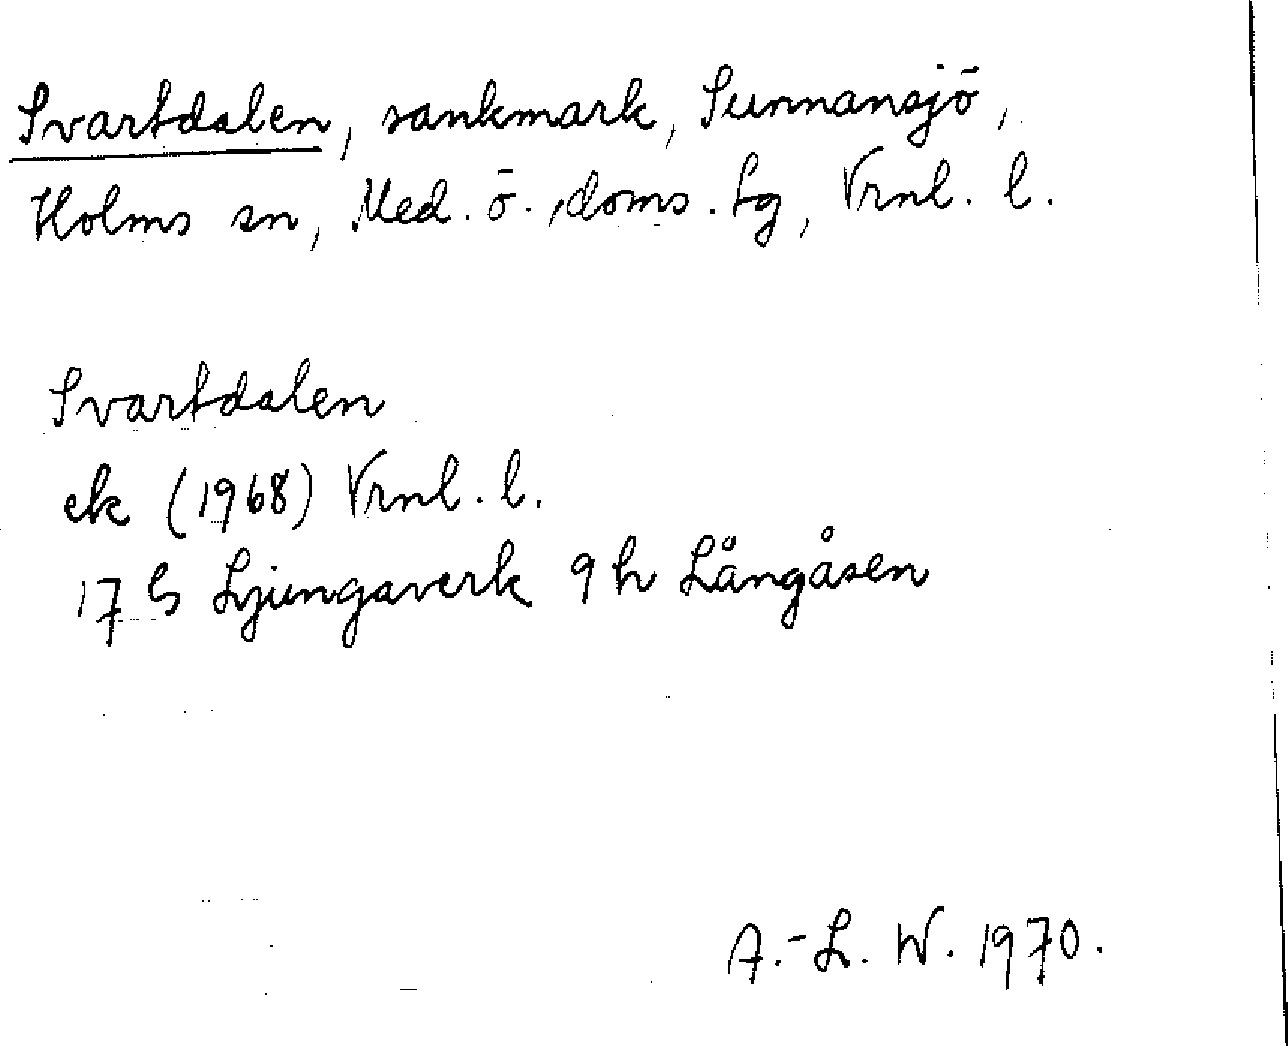 Svartdalen, sankmark, Sunnansjö,
Holms sn, Med. ö. doms. tg, Vrnl. l.
Svartdalen
ek (1968) Vrnl. l.
17 G Ljungaverk 9 h Långåsen
A.-L. W. 1970.